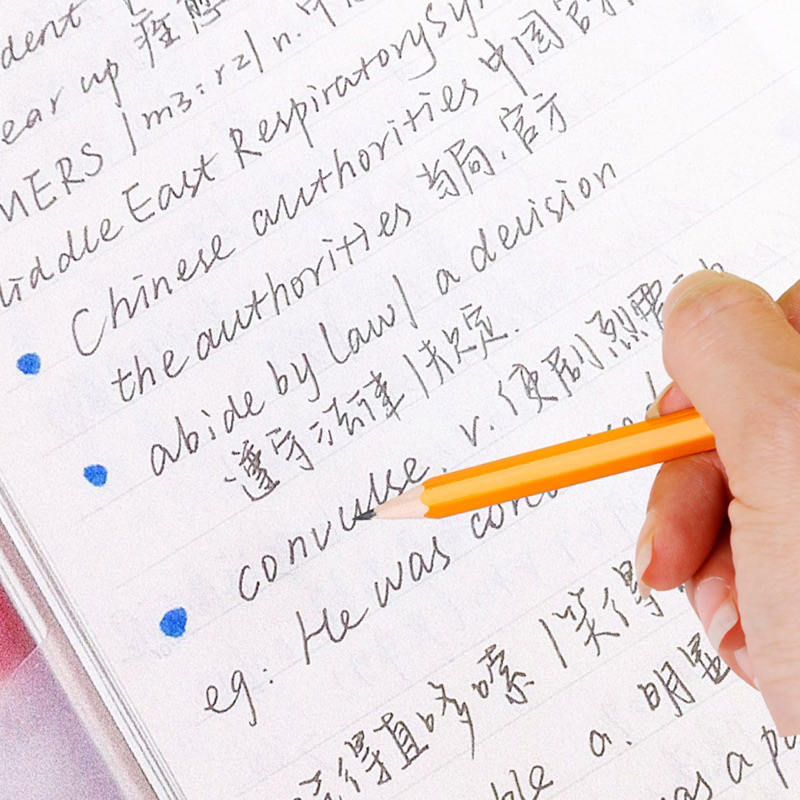 dent
ear up 痊愈
MERS /mɜ:rz/ n. 中
Middle East Respiratory Sy
Chinese authorities 中国官方
the authorities 当局.官方
abide by law / a decision
遵守法律/决定.
convulse. v. 使剧烈震动
eg: He was conv
得直哆嗦 / 笑得
ble a. 明显
was a pa